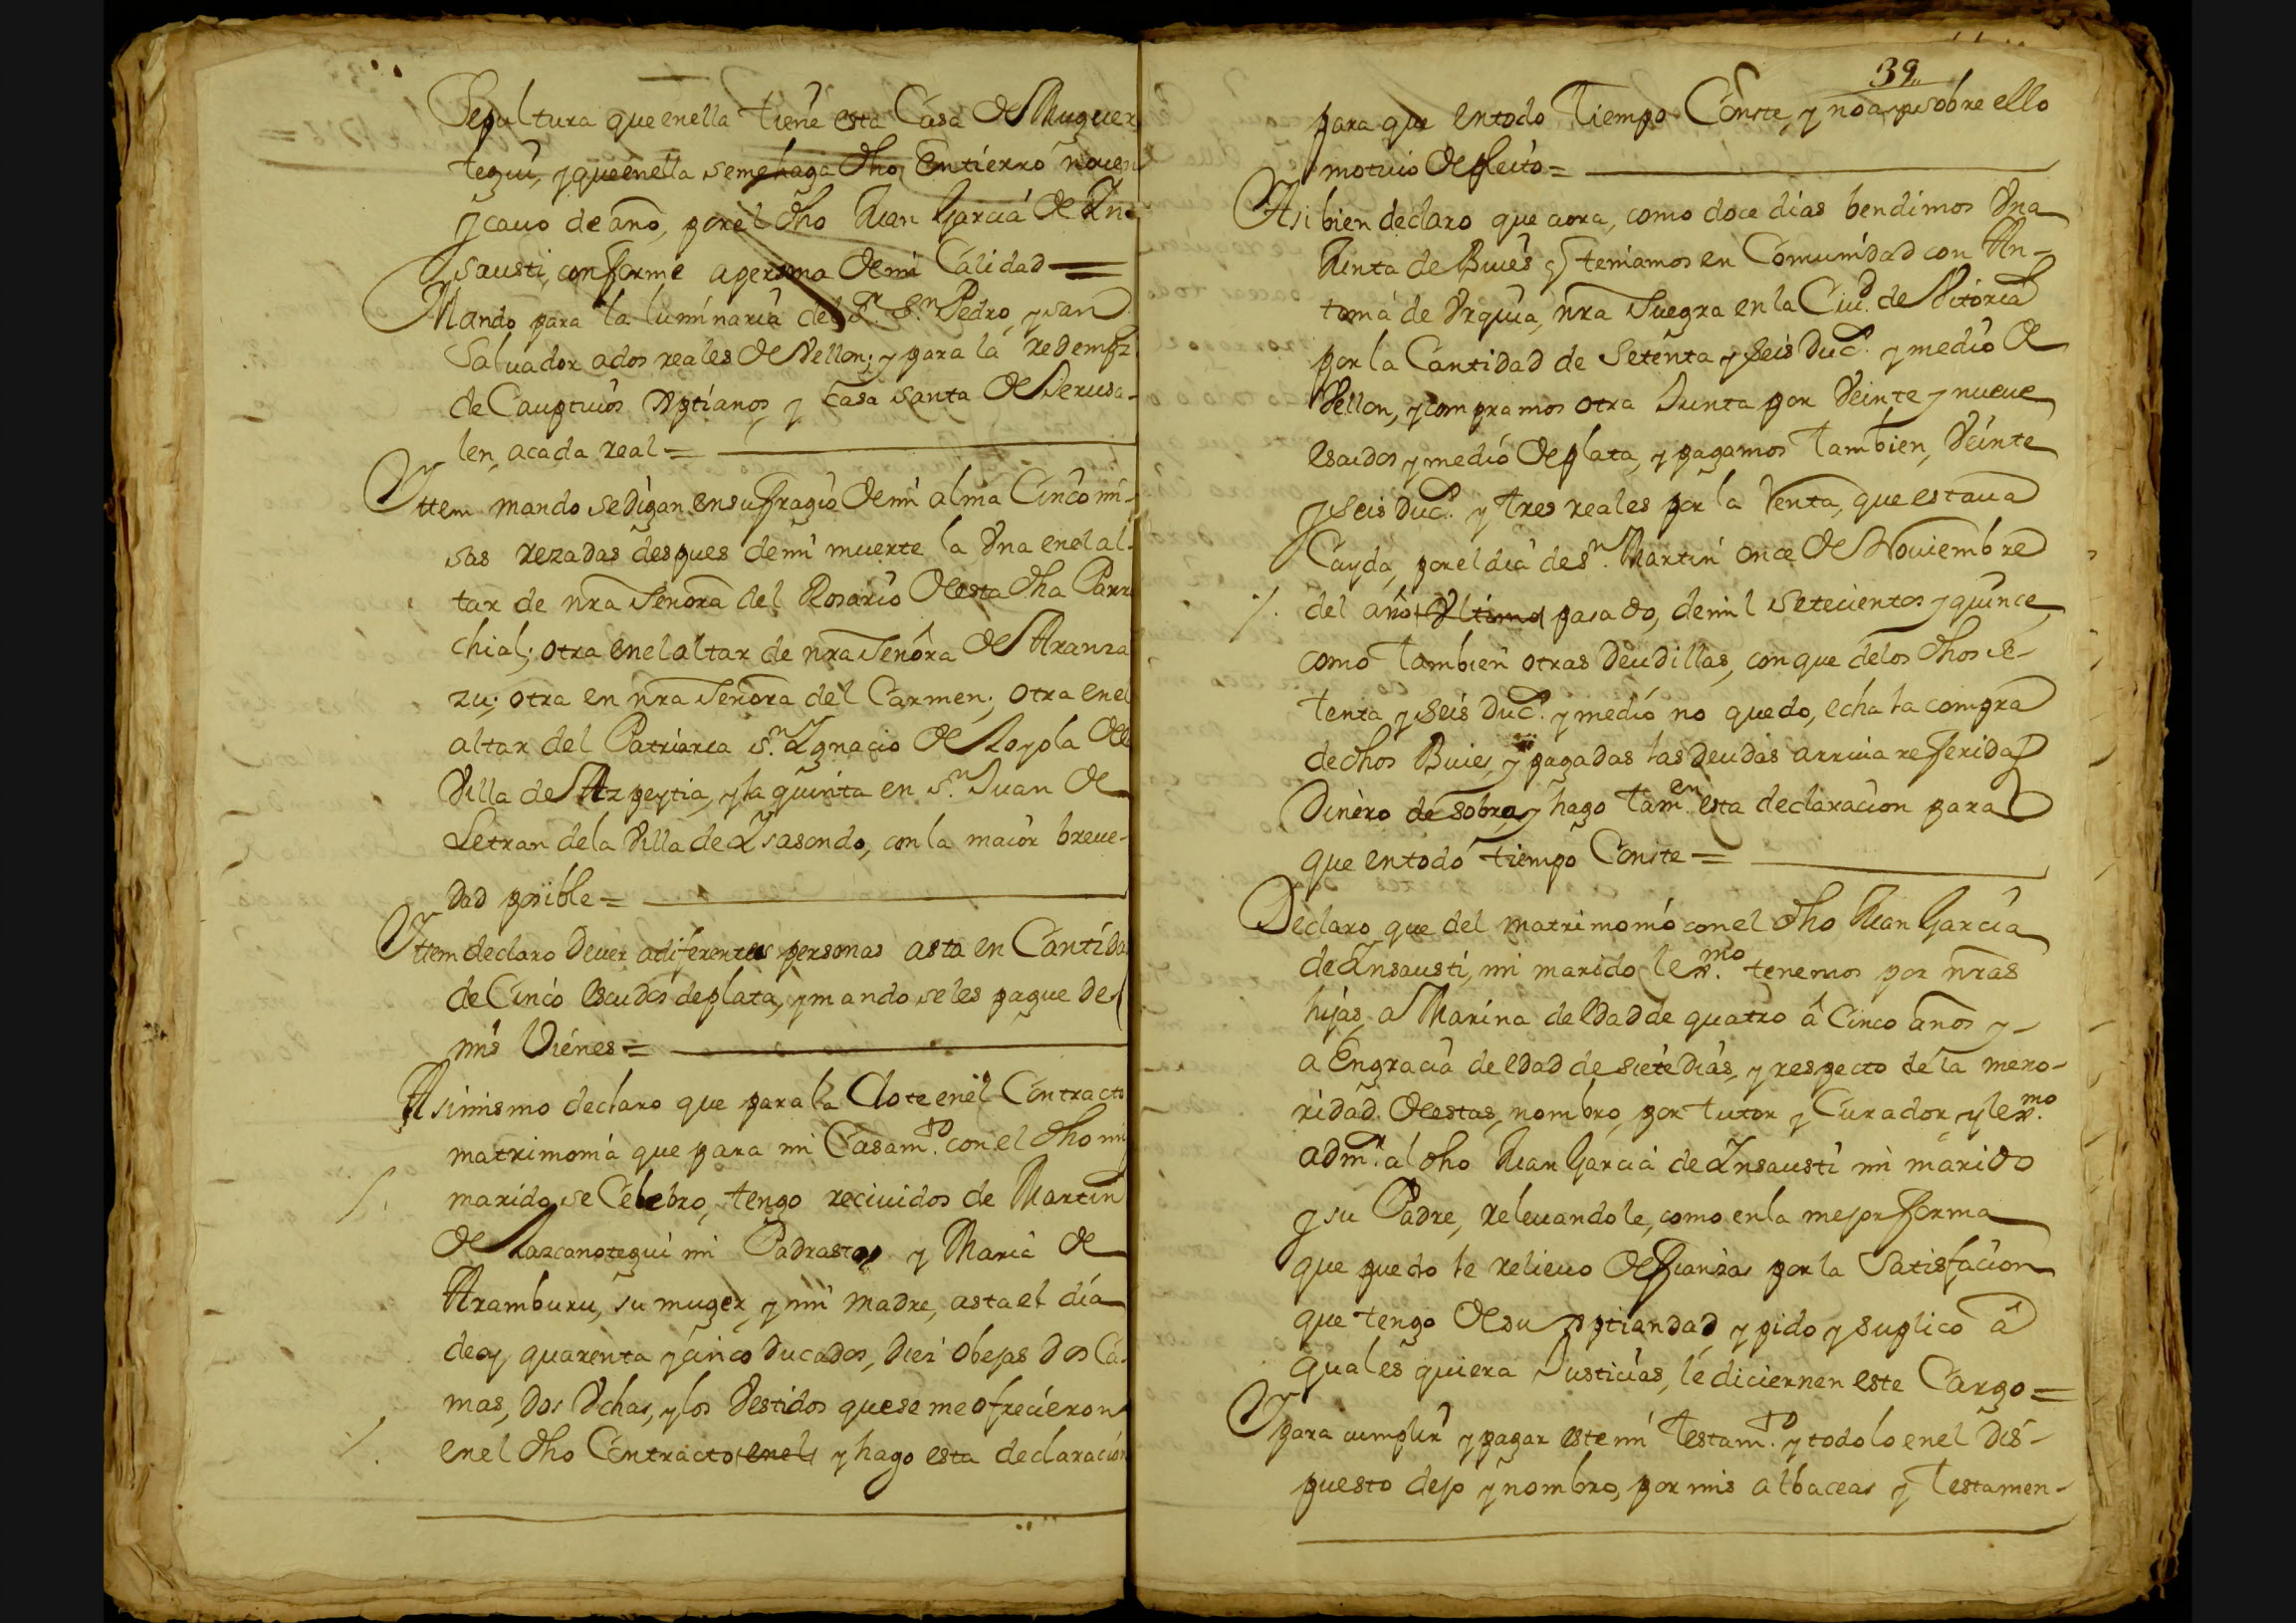 Sepultura que enella tiene esta Casa de Muguer
tegui, y que enella se me haga dho Entierro noven
y cauo de año, por el dho Juan Garcia de Yn
sausti, conforme a persona de mi Calidad =
Mando para la luminaria del Sr. Sn. Pedro, y san
Saluador a dos reales de Vellon; y para la redempz
de Cauptiuos Xptianos, y Casa Santa de Jerusa-
len, a cada real =
Yttem mando se digan en sufragio de mi alma Cinco mi-
sas rezadas despues de mi muerte la Vna enel al-
tar de nra Señora del Rosario de esta dha Parro
chial; otra enel altar de nra Señora de Aranza
zu; otra en nra Señora del Carmen; otra enel
altar del Patriarca Sn. Ygnacio de Loyola de la
Villa de Azpeytia, y la quinta en Sn. Juan de
Letran dela Villa de Ysasondo, con la maior breue-
dad posible =
Yttem declaro deuer a diferentes personas asta en Cantida
de Cinco escudos de plata, y mando se les pague de
mis Vienes =
Asimismo declaro que para la Dote enel Contracto
matrimonia que para mi Casamto. con el dho mi
marido, se Celebro, tengo reciuidos de Martin
de Lazcanotegui mi Padrasto, y Maria de
Aramburu, su muger, y mi madre, asta el dia
de oy, quarenta y cinco ducados, diez obejas dos Ca-
mas, dos Vchas, y los Vestidos que se me ofrecieron
enel dho Contracto enel y hago esta declaracion
39
para que en todo Tiempo Conste, y no aya sobre ello
motiuo de pleito =
Asi bien declaro que aora, como doce dias bendimos Vna
Junta de Bues q teniamos en Comunidad con An-
tonia de Vrquia, nra Suegra en la Ciud. de Vitoria
por la Cantidad de Setenta y seis Ducs. y medio de
Vellon, y compramos otra Junta por Veinte y nueue
escudos y medio de plata, y pagamos tambien, Veinte
y seis Ducs. y tres reales por la Renta, que estaua
Cayda, por el dia de Sn. Martin once de Nouiembre
del año Vltimo pasado, de mil setecientos y quince,
como tambien otras deudillas, con que de los dhos se-
tenta y seis Ducs. y medio no quedo, echa la compra
de dhos Bues, y pagadas las deudas arriua referidas
Dinero de sobra, y hago tamen. esta declaracion para
que en todo tiempo Conste =
Declaro que del matrimonio con el dho Juan Garcia
de Ynsausti, mi marido lexmo. tenemos por nras
hijas, a Marina de edad de quatro â Cinco años y
a Engracia de edad de siete dias, y respecto de la meno-
ridad de estas, nombro, por tutor y Curador, y lexmo.
admr. al dho Juan Garcia de Ynsausti mi marido
y su Padre, releuandole, como en la mejor forma
que puedo le relieuo de fianzas por la Satisfacion
que tengo de su xptiandad, y pido y suplico â
quales quiera Justicias, le diciernen este Cargo =
Y para cumplir y pagar este mi Testamto. y todo lo enel dis-
puesto dejo y nombro, por mis albaceas y Testamen-